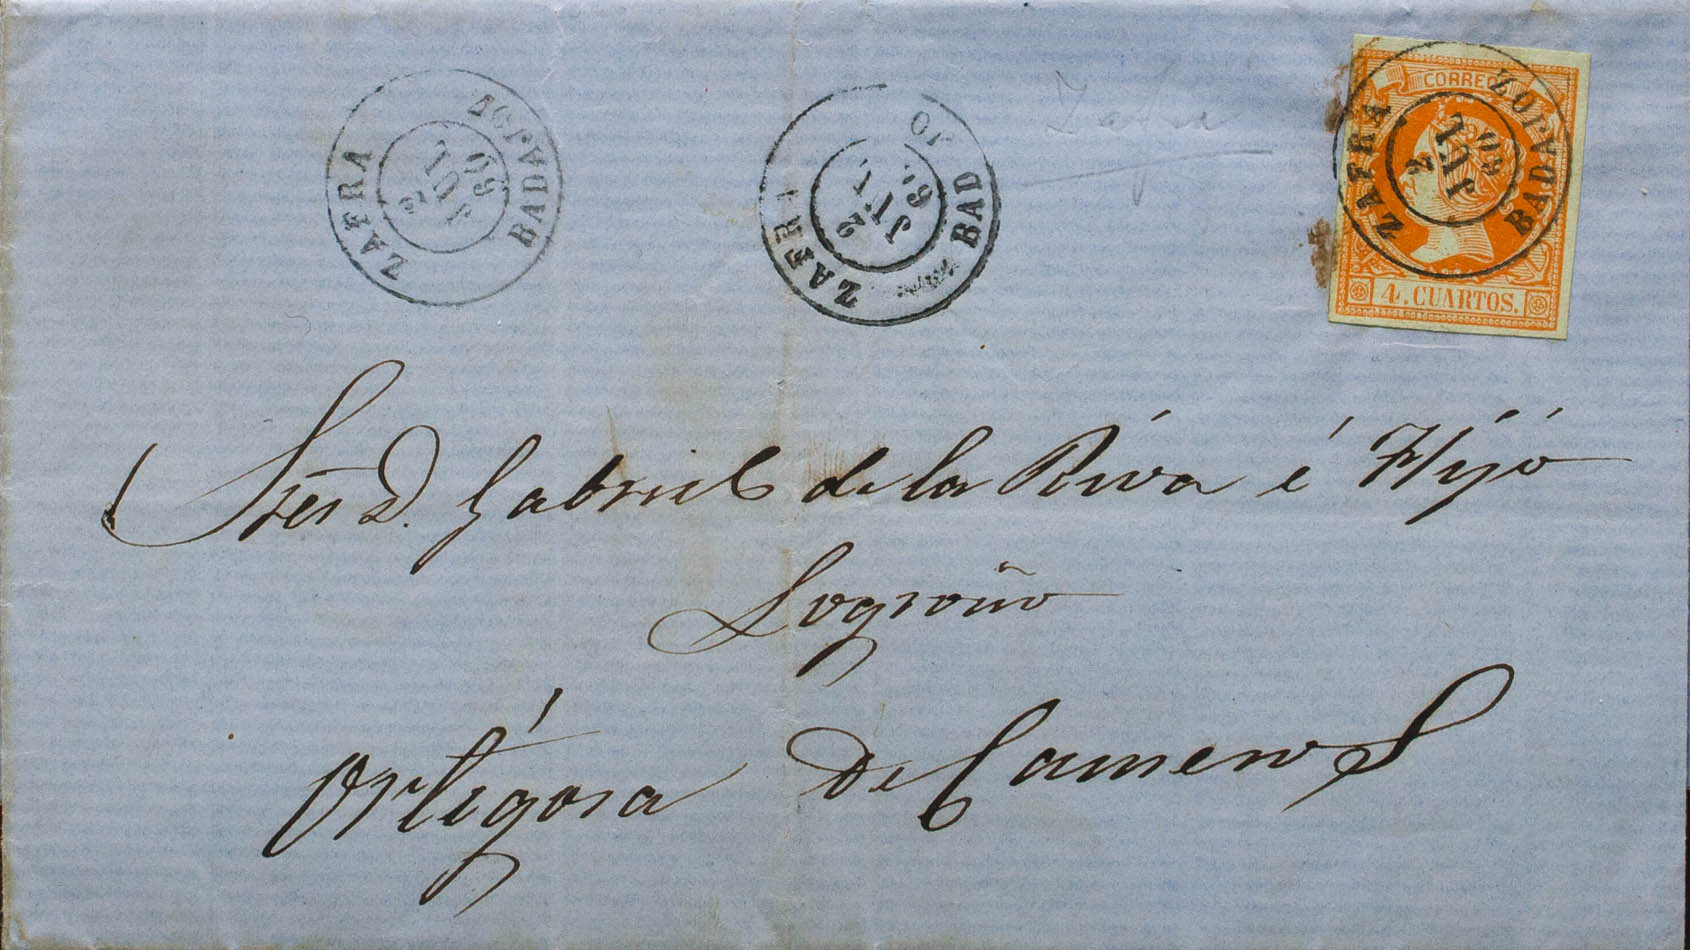 ZAFRA 2 JUL 60 BADAJOZ
ZAFRA 2 JUL 60 BAD JO
Zafra
CORREOS
ZAFRA 2 JUL 60 BADAJOZ
4. CUARTOS.
Sres D. Gabriel de la Riva é Hijo
Logroño
Ortigosa de Cameros